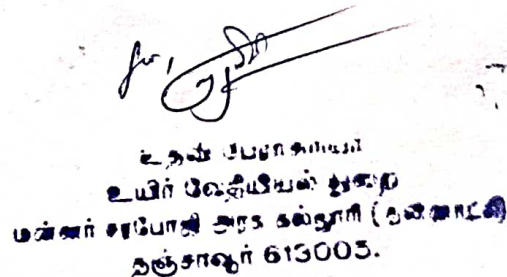 உதவி பேராசிரியர்
உயிர் வேதியியல் துறை
மன்னர் சரபோஜி அரசு கல்லூரி (தன்னாட்சி)
தஞ்சாவூர் 613005.